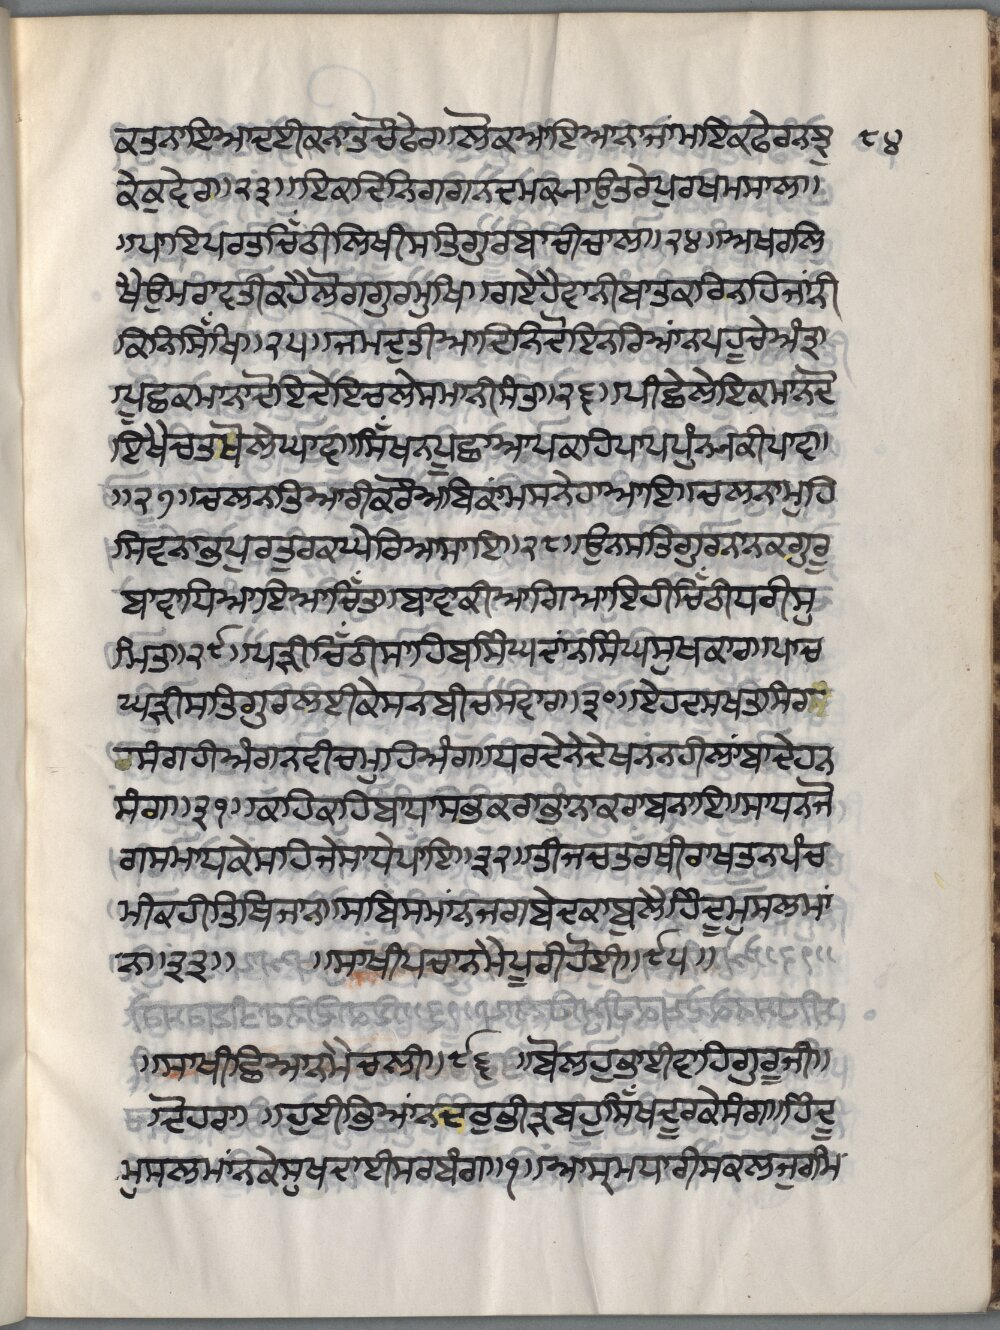 ਕਤਨਾਇਆਦਈਕਨਾਤੋਚੌਫੇਰਾ।ਲੋਕਆਇਆਨਾਜਾਮਾਇਕਫੇਰਨਝੂ ੮੪
ਕੇਕਦੇਰਾ॥੨੩॥ਇਕਦਿਨਿਗਗਨਦਮਕਮਾਉਤਰੇਪੁਰਖਮਸਾਲਾ।
।ਪਾਇਪਰਤਚਿੱਠੀਲਿਖੀਸਤਿਗੁਰਬਾਚੀਚਾਲ॥੨੪॥ਅਖਰਲਿ
ਖੈਉਮਰਾਵਤੀਕਹੈਲੋਗਗੁਰਮੁਖਿ।ਗਏਹੈਵਾਨੀਬਾਤਕਰਿਨਹਿਜਾਂਨੀ
ਕਿਨਿਸਿੱਖਿ॥੨੫॥ਜਮਦੂਤੀਆਦਿਨਿਦੋਇਨਰਿਆਂਨਪਹੂਚੇਅੰਤ੍ਰਾ
ਪੁਛਕਮਾਨਾਦੋਇਦੇਇਚਲੇਸਮਾਨੀਸੰਤ੍ਰਾ॥੨੬॥ਪੀਛੇਲੇਇਕਮਾਨਦੋ
ਇਖੈਚਤਬੋਲੇਘਾਵਾ।ਸਿੱਖਨਪੂਛਾਆਪਕਹਿਪਾਪਪੁੰਨਨਕੀਪਾਵਾ।
॥੨੭॥ਚਲਨਤਿਆਰੀਕਰੋਅਬਿਕਾਂਮਸਨੇਹਾਆਇ।ਚਲਨਾਮੁਹਿ
ਸਿਵਨਾਭੁਪੁਰਤੁਰਕਘੇਰਿਆਸਾਇ॥੨੮॥ਉਨਸਤਿਗੁਰਨਾਨਕਗੁਰੂ
ਬਾਵਾਧਿਆਇਆਚਿੱਤ੍ਰਾ।ਬਾਵਾਕੀਆਗਿਆਇਹੀਚਿੱਠੀਧਰੀਸੁ
ਮਿਤ੍ਰਾ॥੨੯॥ਪੜੀਚਿੱਠੀਸਾਹਿਬਸਿੰਘਦਾਂਨਸਿੰਘਮੁਖਕਾਰਾ।ਪਾਚ
ਘੜੀਸਤਿਗੁਰਲਈਕੇਸਨਬੀਚਸਵਾਰਾ॥੩੦॥ਏਹਦਸਖਤਾਸਿਗਾ
ਸੰਗਹੀਅੰਗਨਵੀਚਮੁਹਿਅੰਗਾ।ਪਰਦੇਨੇਦੇਖਨਨਹੀਲਾਂਬਾਦੇਹਨ
ਸੰਗਾ॥੩੧॥ਕਹਿਕਹਿਬਾਪਾਸਭੁਕਰਾਭੁੰਨਾਕਰਾਬਨਾਇ।ਸਾਧਨਜੋ
ਗਸਮਾਧਕੇਸਾਹਿਜੇਸਾਧੇਪਾਇ॥੩੨॥ਤੀਜਚਤੁਰਥੀਰਾਖਤਨਪੰਚ
ਮੀਕਹੀਤਿਥਿਜਾਨਾ।ਸਾਖਿਸਮਾਂਨਜਗਬੇਦਕਾਬੁਲੈਹਿੰਦੂਮੁਸਲਮਾਂ
ਨ॥੩੩॥ ॥ਸਾਖੀਪਚਾਨਮੇਪੂਰੀਹੋਈ॥੯੫॥
॥ਸਾਖੀਛਿਆਨਮੈਚਲੀ॥੯੬॥ਬੋਲਹੁਭਾਈਵਾਹਿਗੁਰੂਜੀ॥
।ਦੋਹਰਾ॥ਹੁਈਭਿਆਂਨਦਰੁਭੀੜਬਹੁਸਿੱਖਦੂਰਕੇਸੰਗਾ।ਹਿੰਦੂ
ਮੁਸਲਮਾਂਨਕੇਸੁਖਦਾਈਸਰਬੰਗਾ॥੧॥ਆਸ੍ਰਮਧਾਰੀਸਕਲਜੁਰੀਸ